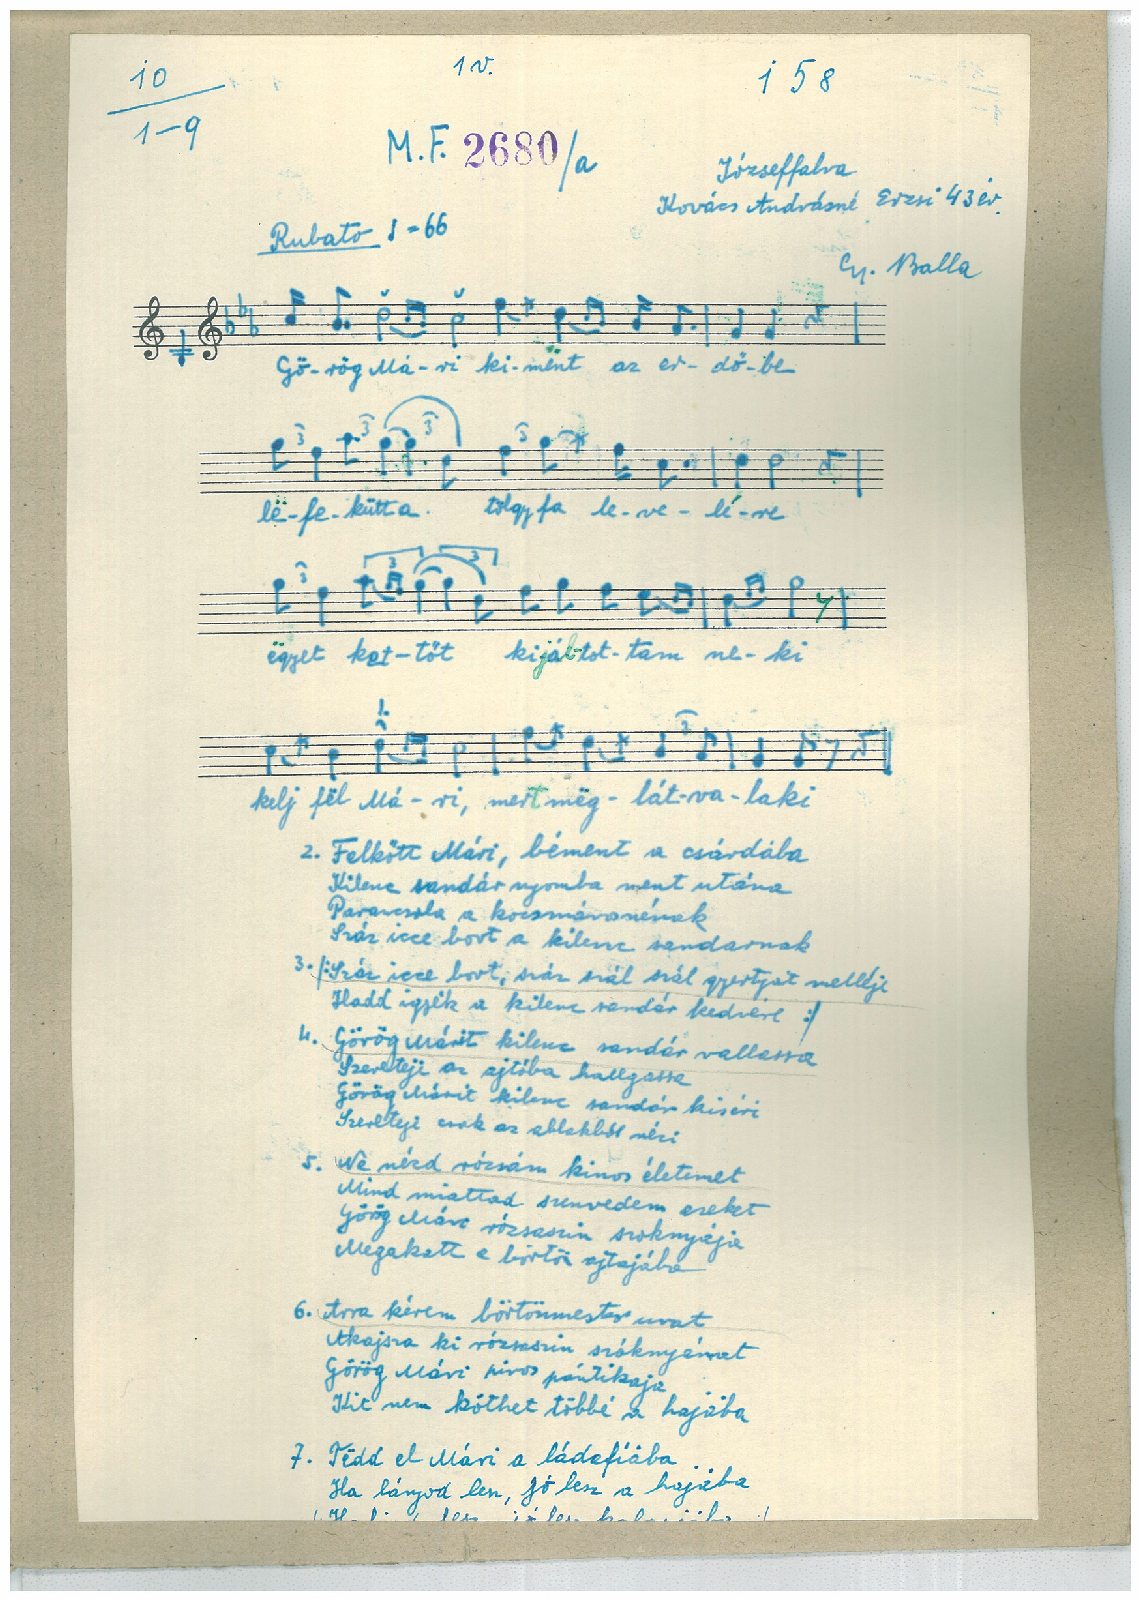 10
1-9
1 v.
158
M.F. 2680/a
Józseffalva
Kovács Andrásné Erzsi 43 év.
Rubato = 66
Gy. Balla
Gö-rög Má-ri ki-mënt az er-dő-be
lë-fe-kütt a tölgyfa le-ve-lé-re
ëgyet ket-tőt kijábtot-tam ne-ki
kelj fël Má-ri, mert mëg-lát-va-laki
2. Felkőtt Mári, bément a csárdába
Kilenc sandár nyomba ment utána
Parancsola a kocsmárosnénak
Száz icce bort a kilenc sandarnak
3. /: Száz icce bort, száz szál szál gyertyát melléje
Hadd igyék a kilenc sandár kedvére :/
4. Görög Márit kilenc sandár vallassa
Szereteji az ajtóba hallgassa
Görög Márit kilenc sandár kiséri
Szereteji csak az ablakból nézi
5. Ne nézd rózsám kinos életemet
Mind miattad szenvedem ezeket
Görög Mári rózsaszin szoknyája
Megakatt a börtön ajtajába
6. Arra kérem börtönmester urat
Akajsza ki rózsaszin szoknyámat
Görög Mári piros pántikaja
Kit nem köthet többé a hajába
7. Tëdd el Mári a ládafiába
Ha lányod lesz, jó lesz a hajába